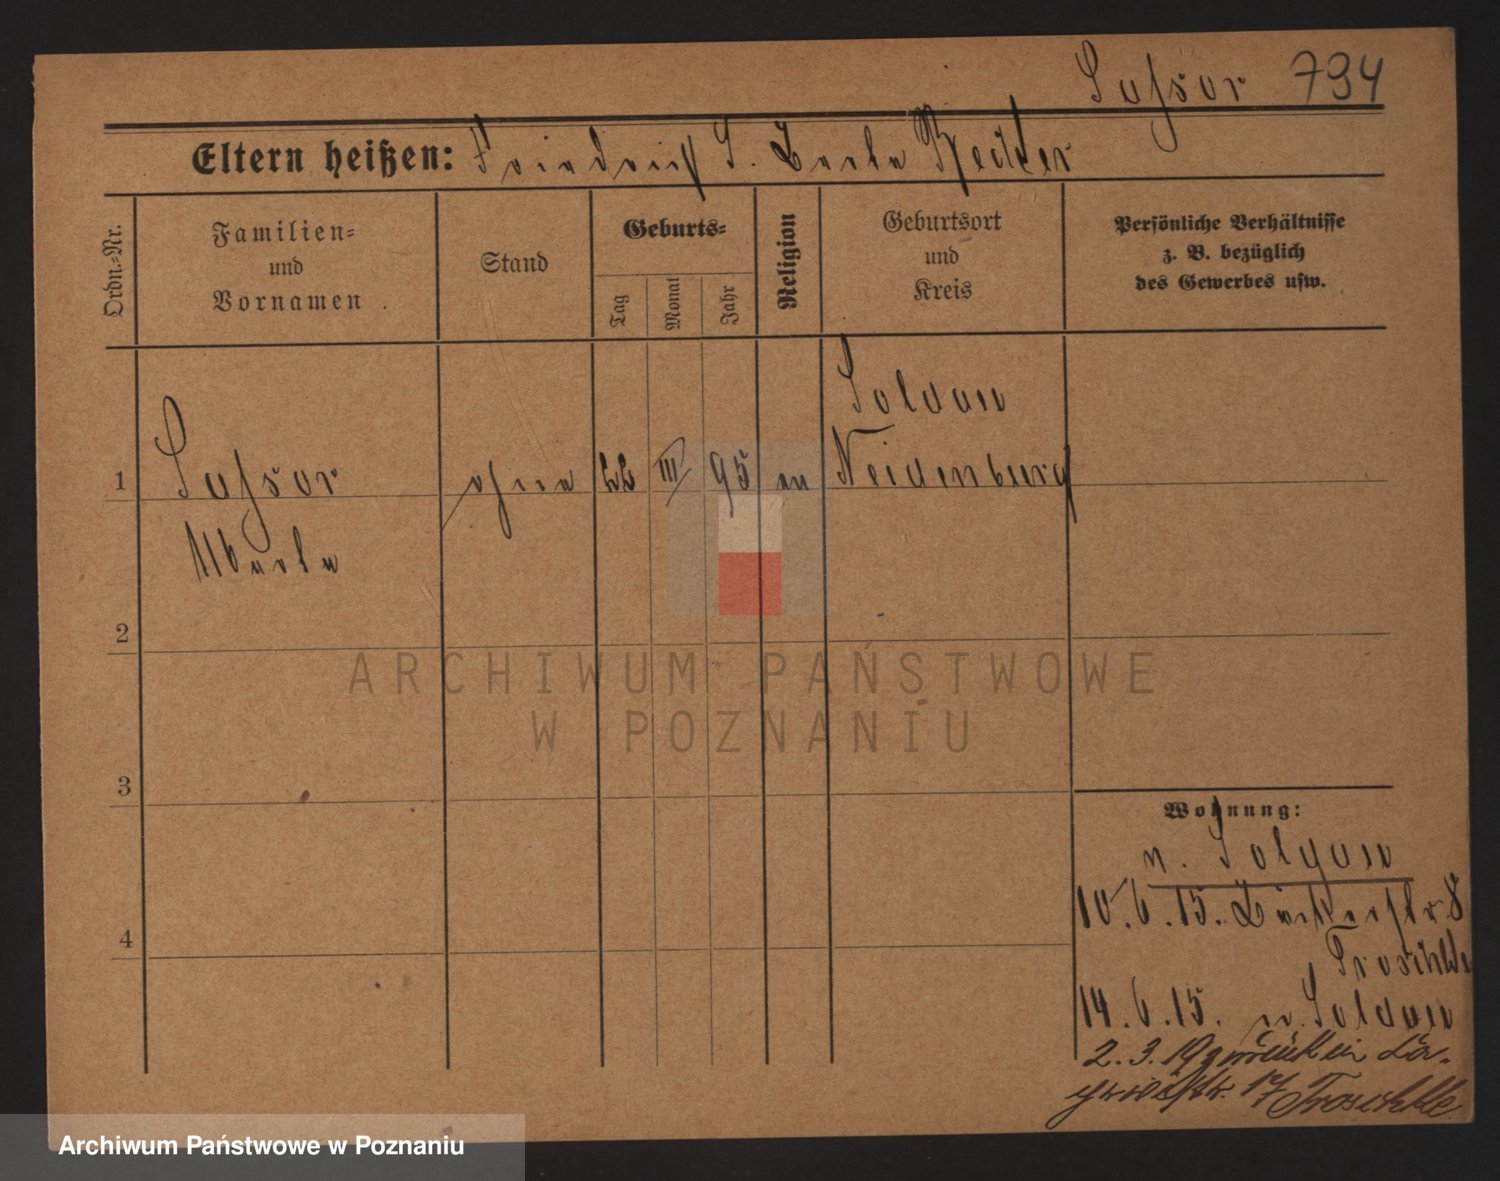 794
Eltern heißen: Friedrich S. Berta Becker
Ordn.-Nr.
Familien-
und
Vornamen.
Stand
Geburts-
Tag
Monat
Jahr
Religion
Geburtsort
und
Kreis
Persönliche Verhältnisse
z. B. bezüglich
des Gewerbes usw.
Soldau
1 ohne 22 III 95 ev Neidenburg
2
3
4
Wohnung:
n. Soldau
10.6.15. Bäckerstr. 8
Troschke
14.6.15. n. Soldau
2.3.19 zurück in
17 Troschke
ARCHIWUM PAŃSTWOWE
W POZNANIU
Archiwum Państwowe w Poznaniu